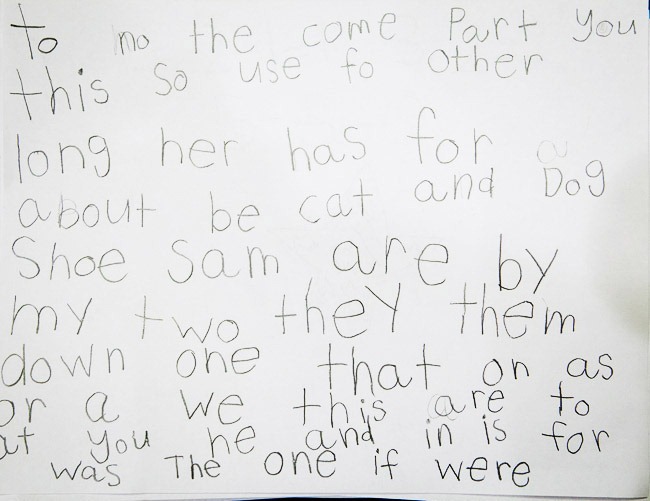 to no the come Part you
this so use fo other
long her has for a
about be cat and Dog
Shoe Sam are by
my two they them
down one that on as
or a we this are to
at you he and in is for
was The one if were